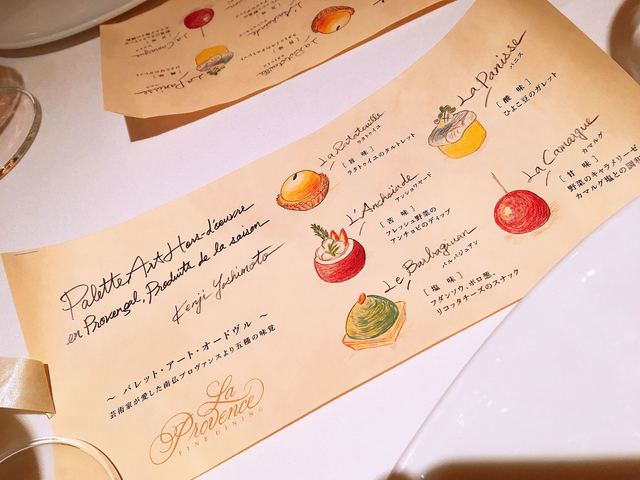 Palette Art Hors-d'oeuvre
en Provençal, Produits de la saison
Kenji Yoshimoto
～ パレット・アート・オードヴル ～
芸術家が愛した南仏プロヴァンスより五種の味覚
La
Provence
FINE DINING
La Ratatouille
ラタトゥイユ
[ 旨 味 ]
ラタトゥイユのタルトレット
L'Anchoïade
アンショワヤード
[ 苦 味 ]
フレッシュ野菜の
アンチョビのディップ
Le Barbaguan
バルバジュアン
[ 塩 味 ]
フダンソウ、ポロ葱、
リコッタチーズのスナック
La Panisse
パニス
[ 酸 味 ]
ひよこ豆のガレット
La Camargue
カマルグ
[ 甘 味 ]
野菜のキャラメリーゼ
カマルグ塩との調和